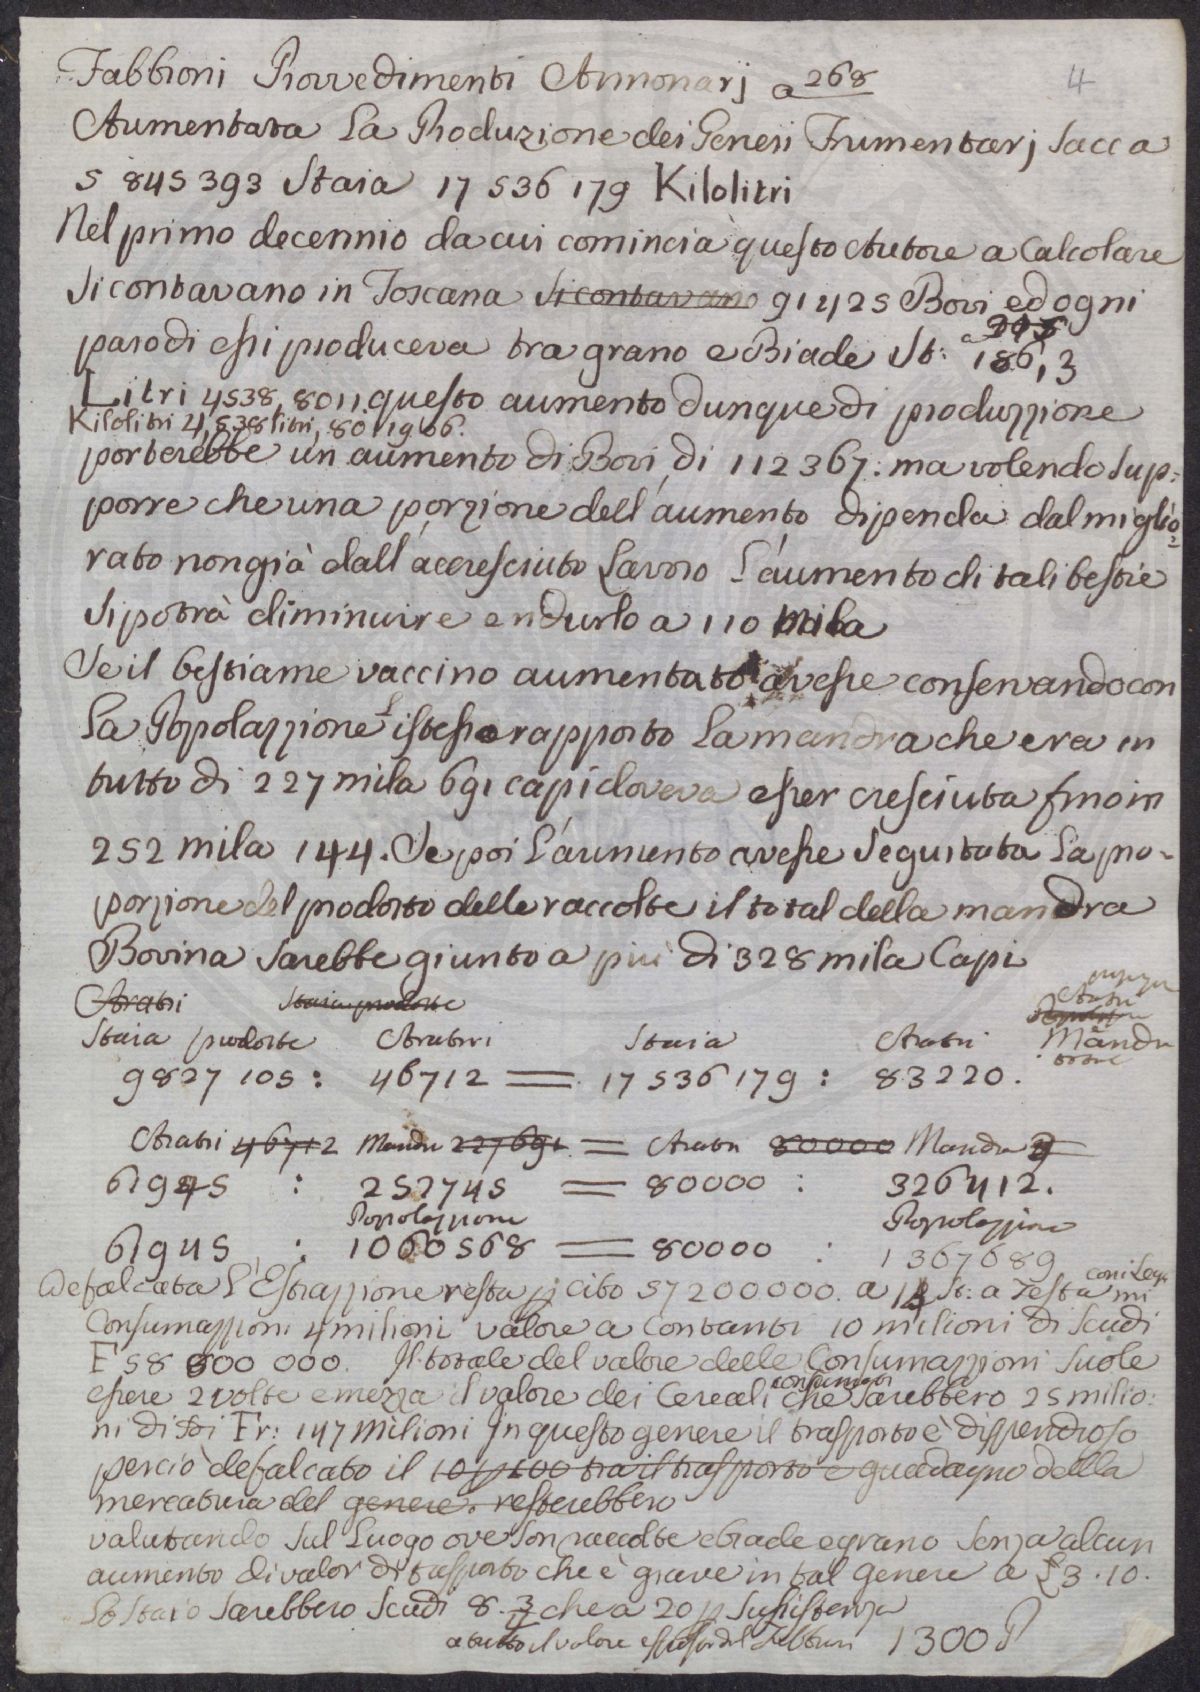 Fabbroni Provvedimenti Annonarj a 268
4
Aumentata La Produzione dei Generi Frumentarj Sacca
5 845 393 Staia 17 536 179 Kilolitri
Nel primo decennio da cui comincia questo Autore a Calcolare
Si contavano in Toscana Si contavano 91425 Bovi ed ogni
paro di essi produceva tra grano e Biade St: 186,3
Litri 4538,8011. questo aumento dunque di produzzione
Kilolitri 4,538 litri, 80 1966.
porterebbe un aumento di Bovi di 112367: ma volendo sup=
porre che una porzione dell'aumento dipenda dal miglio
rato non già dall'accresciuto Lavoro L'aumento di tali bestie
Si potrà diminuire e ridurlo a 110 mila
Se il bestiame vaccino aumentato avesse conservando con
La Popolazzione l'istesso rapporto La mandra che era in
tutto di 227 mila 691 capi doveva esser cresciuta fino in
252 mila 144. Se poi L'aumento avesse Seguitata La pro-
porzione del prodotto delle raccolte il total della mandra
Bovina Sarebbe giunto a più di 328 mila Capi
Aratri Staia prodotte
Staia prodotte Aratri Staia Aratri Mandra
9827 105 : 46712 = 17 536 179 : 83220.
Aratri 46712 Mandra 227691 = Aratri 80000 Mandra
61945 : 252745 = 80000 : 326412.
Popolazzione Popolazzione
61945 : 1060568 = 80000 : 1367689
Defalcata L'Estrazzione resta p cibo 57200000. a 14 St: a Testa
Consumazzioni 4 milioni valore a Contanti 10 milioni di Scudi
F 58 800 000. Il totale del valore delle Consumazzioni Suole
essere 2 volte e mezza il valore dei Cereali consumati che Sarebbero 25 milio:
ni di Sdi Fr: 147 Milioni In questo genere il trasporto è dispendioso
perciò defalcato il 10 p 100 tra il trasporto e guadagno della
mercatura del genere. resterebbero
valutando Sul Luogo ove Son raccolte biade e grano Senza alcun
aumento di valor di trasporto che è grave in tal genere a £ 3.10.
Lo Staio Sarebbero Scudi 8.3 che a 20 p Sussistenza
a tutto il valore 1300